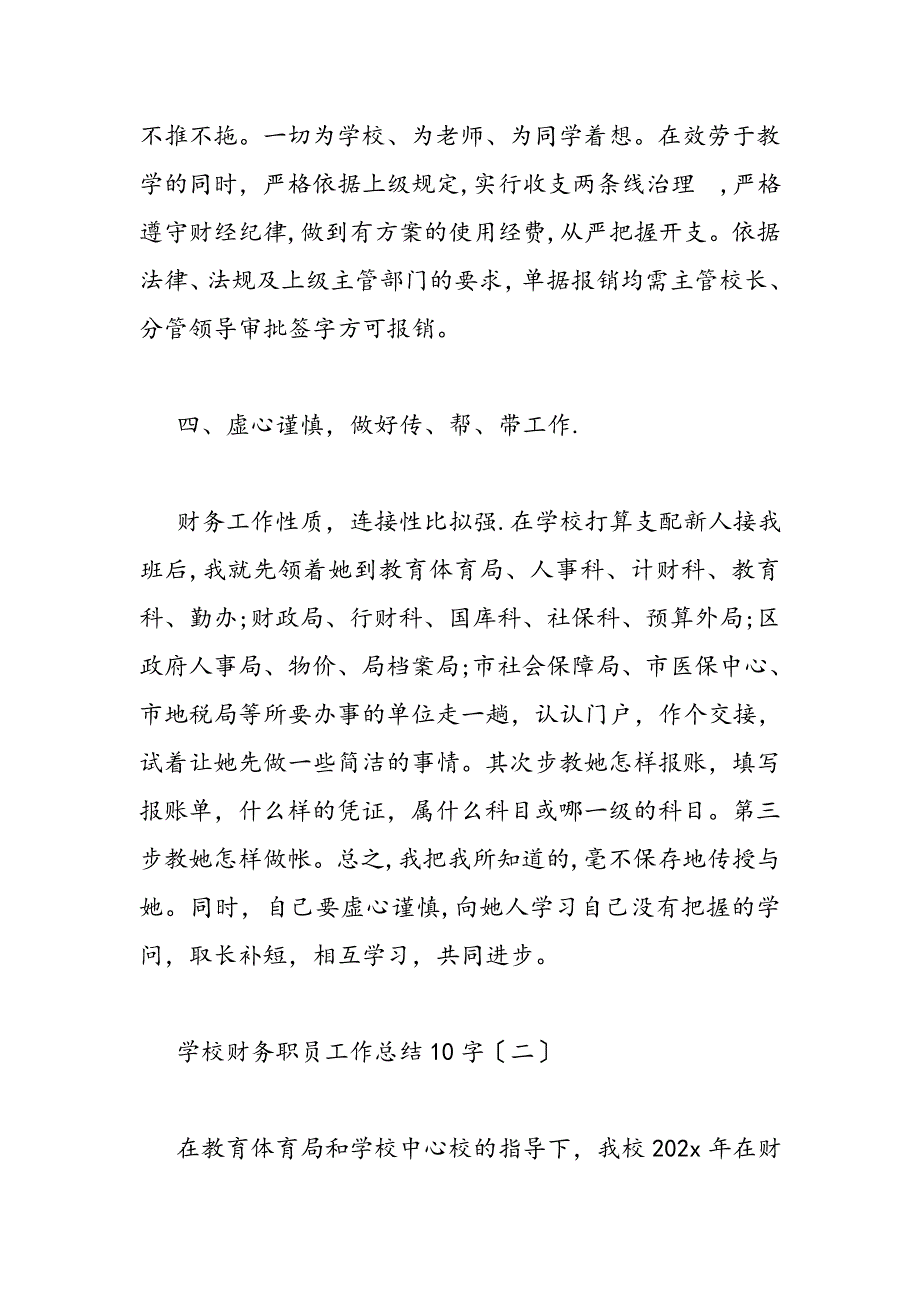 不推不拖。一切为学校、为老师、为同学着想。在效劳于教
学的同时，严格依据上级规定,实行收支两条线治理　,严格
遵守财经纪律,做到有方案的使用经费,从严把握开支。依据
法律、法规及上级主管部门的要求,单据报销均需主管校长、
分管领导审批签字方可报销。
四、虚心谨慎，做好传、帮、带工作.
财务工作性质，连接性比拟强.在学校打算支配新人接我
班后,我就先领着她到教育体育局、人事科、计财科、教育
科、勤办;财政局、行财科、国库科、社保科、预算外局;区
政府人事局、物价、局档案局;市社会保障局、市医保中心、
市地税局等所要办事的单位走一趟，认认门户，作个交接，
试着让她先做一些简洁的事情。其次步教她怎样报账，填写
报账单，什么样的凭证，属什么科目或哪一级的科目。第三
步教她怎样做帐。总之,我把我所知道的,毫不保存地传授与
她。同时，自己要虚心谨慎,向她人学习自己没有把握的学
问，取长补短，相互学习，共同进步。
学校财务职员工作总结10字〔二〕
在教育体育局和学校中心校的指导下，我校202x年在财